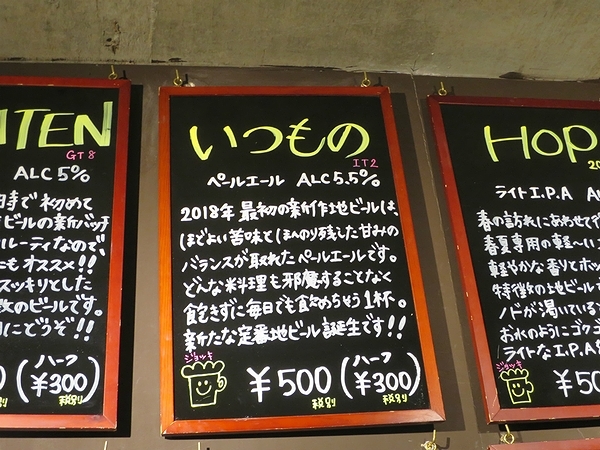 ITEN
GT8
ALC 5%
時で初めて
ビールの新バッチ
ルーティなので、
にもオススメ!!
スッキリとした
数のビールです。
にどうぞ!!
0(ハーフ ¥300)
税別
いつもの
IT2
ペールエール ALC 5.5%
2018年 最初の新作地ビールは、
ほどよい苦味とほんのり残した甘みの
バランスが取れたペールエールです。
どんな料理も邪魔することなく
飽きずに毎日でも飲めちゃう1杯。
新たな定番地ビール誕生です!!
ジョッキ
¥500(ハーフ ¥300)
税別 税別
HOP
20
ライトI.P.A A
春の訪れにあわせて
春夏専用の軽〜い
軽やかな香りとホッ
特徴数の地ビール
ノドが渇いている
お水のようにゴクゴ
ライトなI.P.A
ジョッキ
¥50